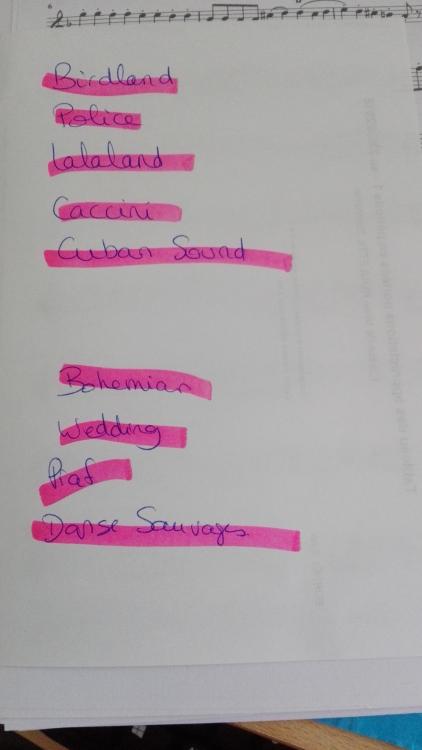 6
Birdland
Police
Lalaland
Caccini
Cuban Sound
Bohemian
Wedding
Piaf
Danse Sauvages